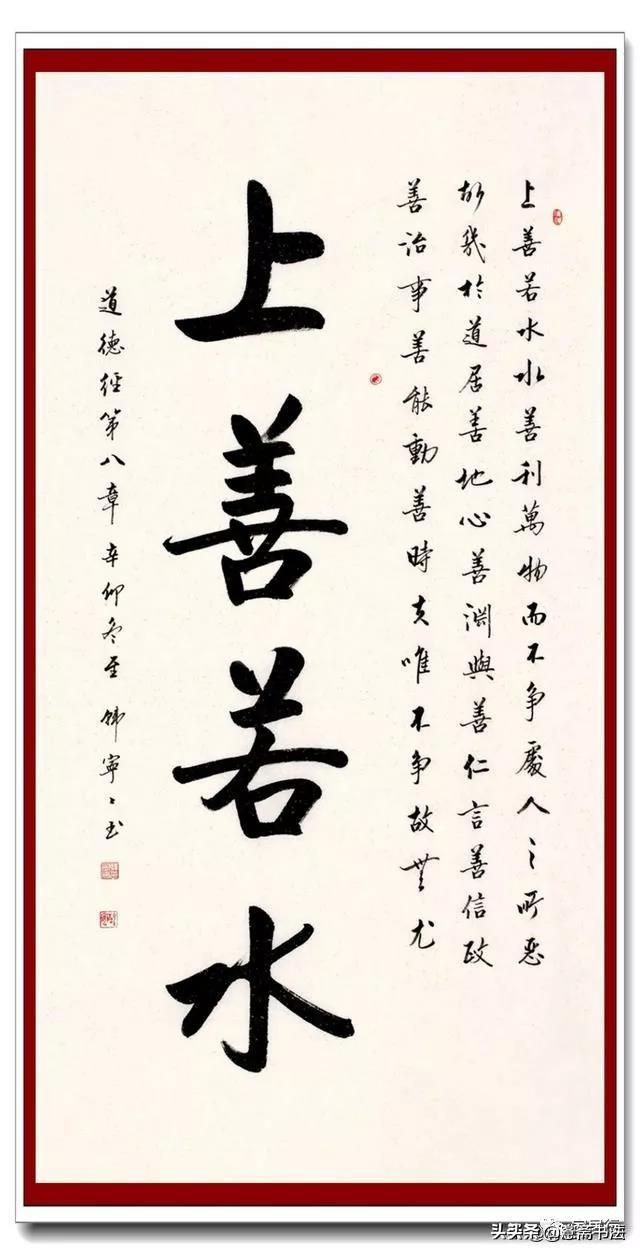 上善若水水善利萬物而不争處人之所惡
故幾於道居善地心善淵與善仁言善信政
善治事善能動善時夫唯不争故無尤
上善若水
道德經第八章 辛卯冬至 寧〻书
头条 斋书法